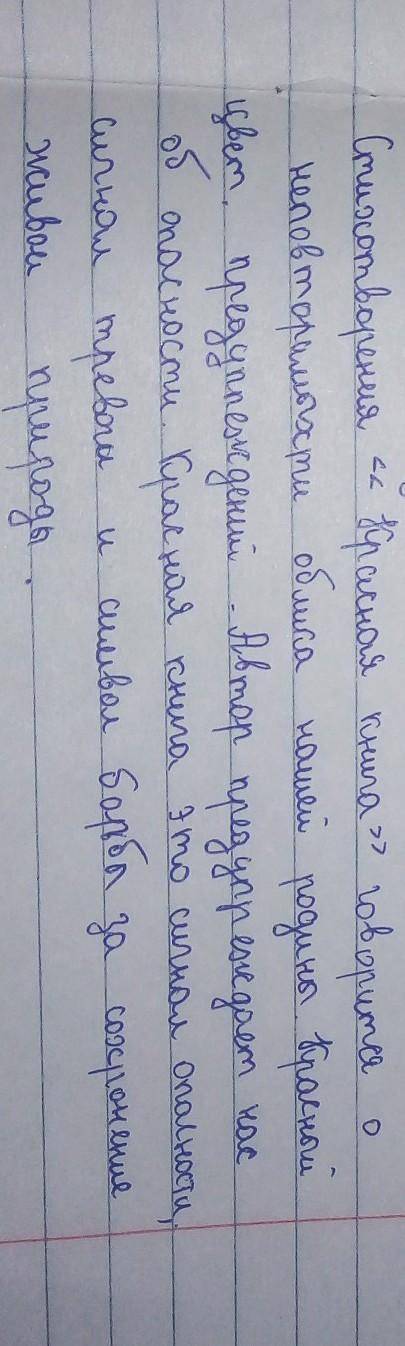 Стихотворения «Красная книга» говорится о
неповторимости облиса нашей родины. Красный
цвет, предуппеждений. Автор предупреждает нас
об опасности. Красная книга это сигнал опасности,
сигнал тревоги и символ борбы за сохронение
живой природы.